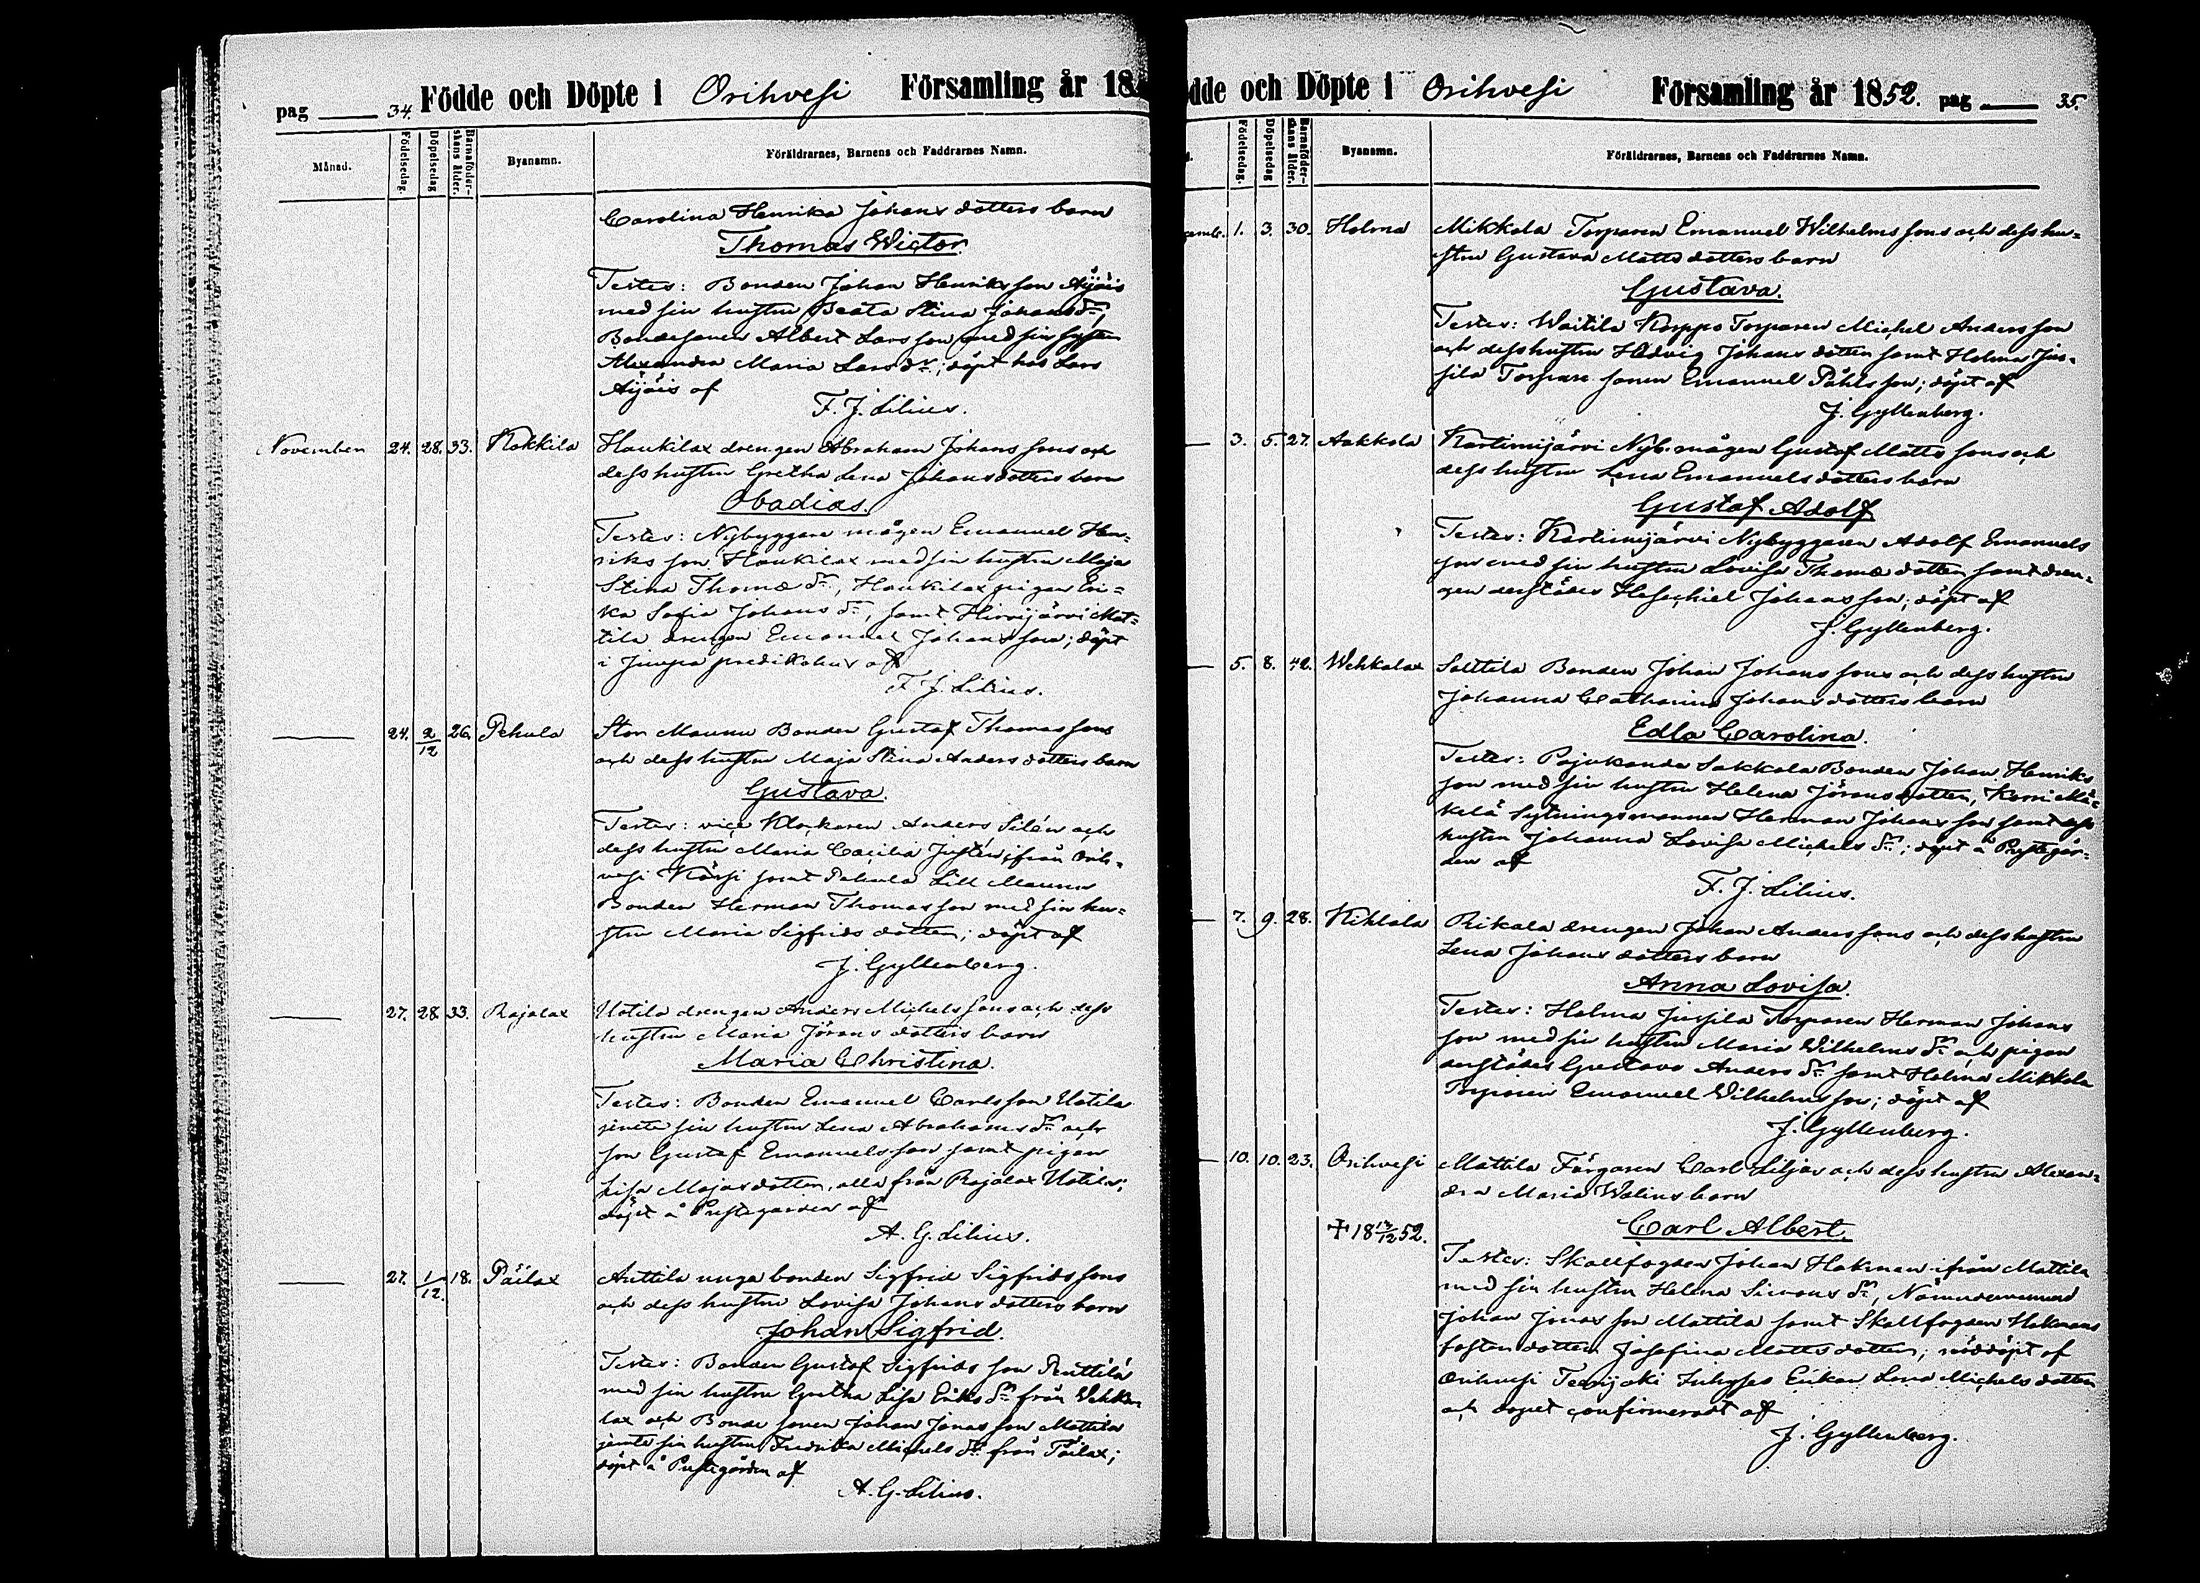 pag 34. Födde och Döpte i Orihvesi Församling år 18
Månad. Födelsedag. Döpelsedag Barnaföderskans ålder. Byanamn. Föräldrarnes, Barnens och Faddrarnes Namn.
Carolina Henrika Johans dotters barn
Thomas Wictor.
Testes: Bonden Johan Henriksson Äijäis
med sin hustru Beata Stina Johans dr,
Bondesonen Albert Larsson med sin syster
Alexandra Maria Lars dr; döpt hos Lars
Äijäis af
F. J. Lilius.
November 24. 28. 33. Kokkila Haukilax drengen Abraham Johans sons och
dess hustru Gretha Lena Johansdotters barn
Obadias.
Testes: Nybyggare mågen Emanuel Hen-
riks son Haukilax med sin hustru Maja
Stina Thomæ dr, Haukilax pigan Eri-
ka Sofia Johans dr, samt Hirvijärvi Mat-
tila drengen Emanuel Johansson; döpt
i Juupa predikohus af
F. J. Lilius.
24. 2/12 26. Pehula Stor Maunu Bonden Gustaf Thomas sons
och dess hustru Maja Stina Anders dotters barn
Gustava.
Testes: vice Klockaren Anders Silén och
dess hustru Maria Cæcilia Justén, från Orih-
vesi Körsi samt Pehula Lill Maunu
Bonden Herman Thomas son med sin hu-
stru Maria Sigfrids dotter; döpt af
J. Gyllenberg.
27. 28. 33. Rajalax Uotila drengen Anders Michels sons och dess
hustru Maria Jörans dotters barn
Maria Christina.
Testes: Bonden Emanuel Carlsson Uotila
jemte sin hustru Lena Abrahams dr och
son Gustaf Emanuelsson samt pigan
Lisa Majasdotter, alla från Rajalax Uotila;
döpt å Prestegården af
A. G. Lilius.
27. 1/12. 18. Päilax Anttila unga bonden Sigfrid Sigfrids sons
och dess hustru Lovisa Johans dotters barn
Johan Sigfrid.
Testes: Bonden Gustaf Sigfrids son Penttilä
med sin hustru Gretha Lisa Eriks dr från Wehka-
lax och Bonde sonen Johan Jonas son Mattila
jemte sin hustru Fredrika Michels dr från Päilax;
döpt å Prestegården af
A. G. Lilius.
dde och Döpte i Orihvesi Församling år 1852. pag 35.
Födelsedag. Döpelsedag Barnaföderskans ålder. Byanamn. Föräldrarnes, Barnens och Faddrarnes Namn.
cemb. 1. 3. 30. Holma Mikkola Torparen Emanuel Wilhelms sons och dess hu-
stru Gustava Matts dotters barn
Gustava.
Testes: Waitila Korppo Torparen Michel Andersson
och dess hustru Hedvig Johans dotter samt Holma Jus-
sila Torpare sonen Emanuel Påhlsson; döpt af
J. Gyllenberg.
3. 5. 27. Aakkola Kortisnijärvi Nyb. mågen Gustaf Matts sons och
dess hustru Lena Emanuelsdotters barn
Gustaf Adolf
Testes: Kortisnijärvi Nybyggaren Adolf Emanuels
son med sin hustru Lovisa Thomæ dotter samt dren-
gen derstädes Hesechiel Johansson; döpt af
J. Gyllenberg.
5. 8. 42. Wehkalax Solttila Bonden Johan Johans sons och dess hustru
Johanna Catharina Johans dotters barn
Edla Carolina.
Testes: Pajukanda Sakkola Bonden Johan Henriks
son med sin hustru Helena Jöransdotter, Korri Mä-
kelä Sytningsmannen Herman Johans son samt dess
hustru Johanna Lovisa Michels dr; döpt å Prestegår-
den af
F. J. Lilius.
7. 9. 28. Kihlala Rikala drengen Johan Anders sons och dess hustru
Lena Johans dotters barn
Anna Lovisa.
Testes: Holma Jussila Torparen Herman Johans
son med sin hustru Maria Wilhelms dr och pigan
derstädes Gustava Anders dr samt Holma Mikkola
Torparen Emanuel Wilhelmsson; döpt af
J. Gyllenberg.
10. 10. 23. Orihvesi Mattila Färgaren Carl Liljas och dess hustru Alexan-
dra Maria Walins barn
✝ 18 12/12 52. Carl Albert.
Testes: Skallfogden Johan Hokman ifrån Mattila
med sin hustru Helena Simons dr, Nämndemannen
Johan Jonas son Mattila samt Skallfogden Hokmans
foster dotter Josefina Matts dotter; nöddöpt af
Orihvesi Teerijoki Enka Lena Michels dotter
och dopet confirmeradt af
J. Gyllenberg.